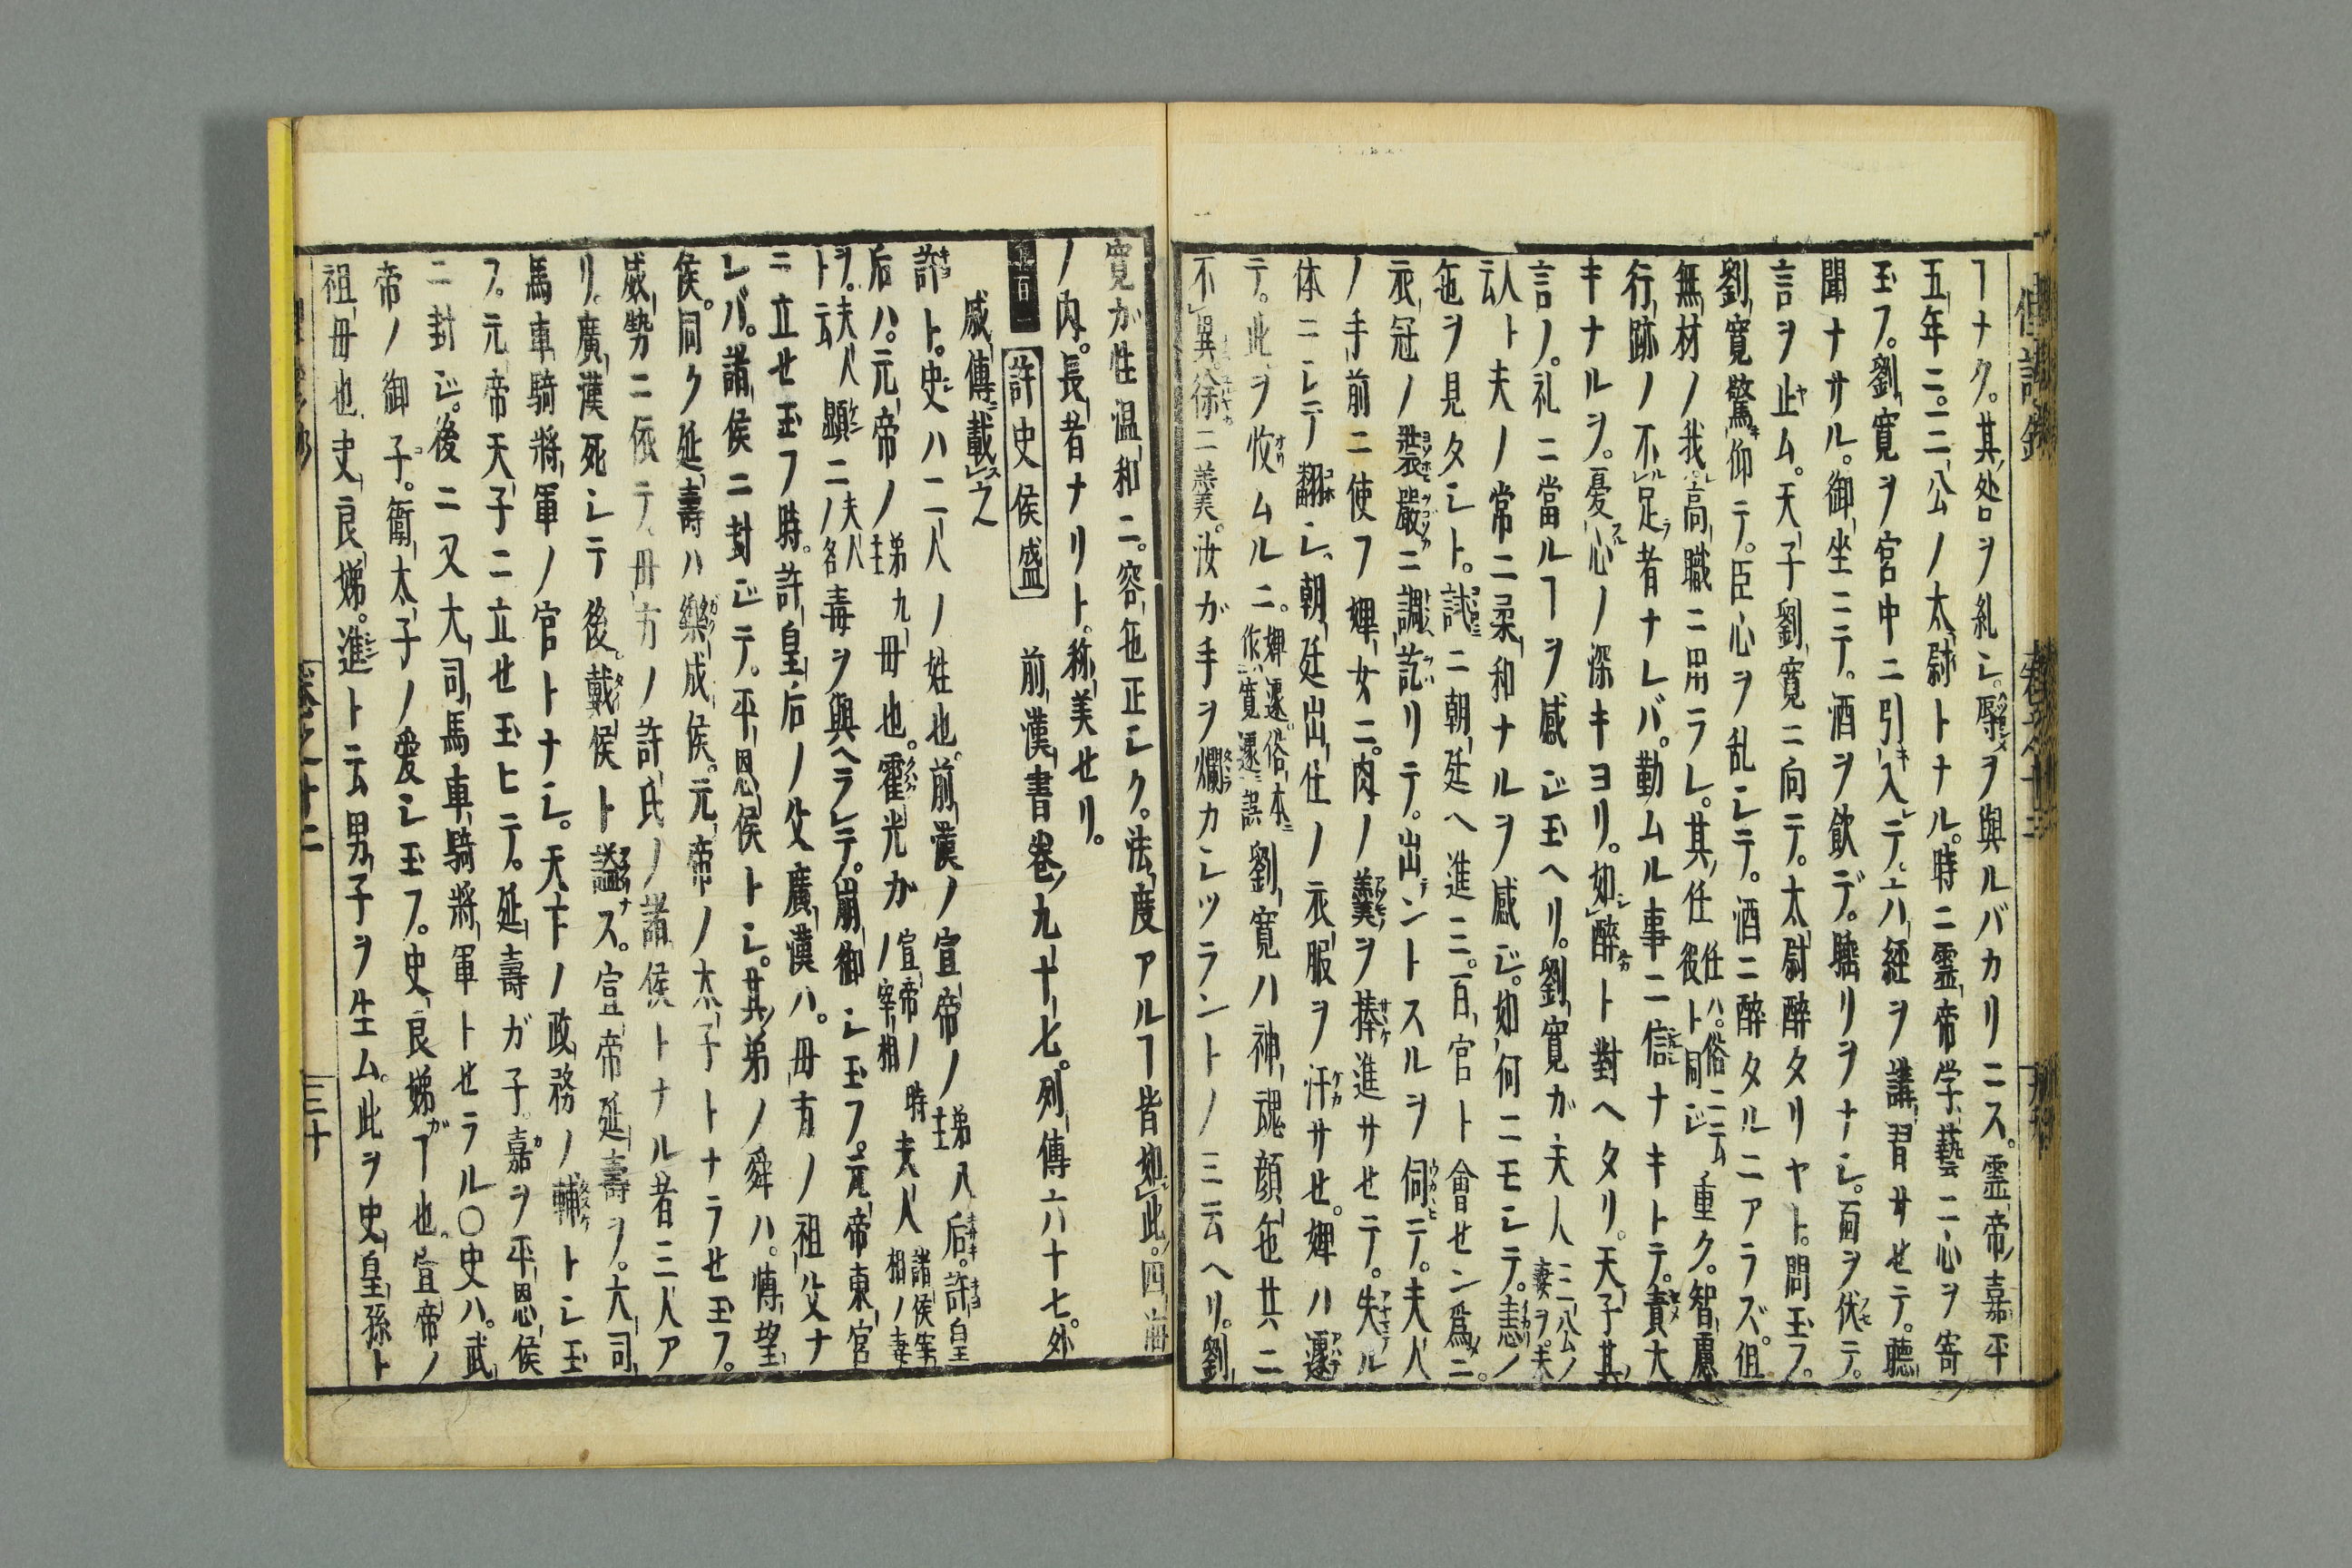 ヿナク。其咎ヲ糺シ。辱ヲ與ルバカリニス。霊帝嘉平
五年ニ。三公ノ太尉トナル。時ニ霊帝学藝ニ心ヲ寄
玉フ。劉寛ヲ宮中ニ引入テ。六経ヲ講習サセテ。聴
聞ナサル。御坐ニテ。酒ヲ飲デ。睡リヲナシ。面ヲ伏テ。
言ヲ止ム。天子劉寛ニ向テ。太尉醉タリヤト。問玉フ。
劉寛驚仰テ。臣心ヲ乱シテ。酒ニ醉タルニアラズ。但
無材ノ我。高職ニ用ラレ。其任任ハ。俗ニ云役ト同ジ重ク。智慮
行跡ノ不足者ナレバ。勤ムル事ニ信ナキトテ。責大
キナルヲ。憂心ノ深キヨリ。如醉ト對ヘタリ。天子其
言ノ。礼ニ當ルヿヲ感ジ玉ヘリ。劉寛ガ夫人三公ノ妻ヲ。夫
人ト云夫ノ常ニ柔和ナルヲ感ジ。如何ニモシテ。恚ノ
色ヲ見タシト。試ニ朝廷ヘ進ミ。百官ト會セン爲ニ。
衣冠ノ裝嚴ニ調訖リテ。出ントスルヲ伺テ。夫人
ノ手前ニ使フ婢女ニ。肉ノ羹ヲ捧進サセテ。失ル
体ニシテ翻シ、朝廷出仕ノ衣服ヲ汗サセ。婢ハ遽
テ。此ヲ收ムルニ。婢遽俗本作寛遽誤劉寛ハ神魂顔色共ニ
不異。徐ニ羹。汝ガ手ヲ爛カシツラントノミ云ヘリ。劉
寛ガ性温和ニ。容色正シク。法度アルヿ皆如此。四海
ノ内。長者ナリト。称美セリ。
許史侯盛 前漢書卷九十七。列傳六十七。外
戚傳載之
許ト。史ハ二人ノ姓也。前漢ノ宣帝ノ第八主后。許皇
后ハ。元帝ノ第九主母也。霍光ガ宣帝ノ時ノ宰相夫人諸侯宰相ノ妻
ヲ。夫人ト云顕夫人ノ名ニ毒ヲ與ヘラレテ。崩御シ玉フ。元帝東宮
ニ立セ玉フ時。許皇后ノ父廣漢ハ。母方ノ祖父ナ
レバ。諸侯ニ封ジテ。平恩侯トシ。其弟ノ舜ハ。愽望
侯。同ク延壽ハ樂成侯。元帝ノ太子トナラセ玉フ。
威勢ニ依テ。母方ノ許氏ノ諸侯トナル者三人ア
リ。廣漢死シテ後。戴侯ト謚ス。宣帝延壽ヲ。大司
馬車騎將軍ノ官トナシ。天下ノ政務ノ輔トシ玉
フ。元帝天子ニ立セ玉ヒテ。延壽ガ子。嘉ヲ平恩侯
ニ封ジ。後ニ又大司馬車騎將軍トセラル〇史ハ。武
帝ノ御子。衞太子ノ愛シ玉フ。史良娣ガヿ也。宣帝ノ
祖母也。史良娣。進ト云男子ヲ生ム。此ヲ史皇孫ト
卷之十二 三十